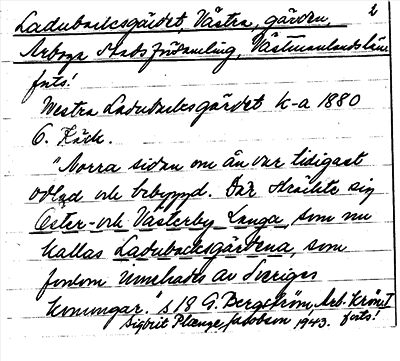 2
Ladubacksgärdet, Västra, gärden
Arboga stadsförsamling, Västmanlands län
forts!
Westra Ladubacksgärdet k-a 1880
6. Käck.
"Norra sidan om ån var tidigast
odlad och bebyggd. Där sträckte sig
Öster- och Västerby Länga, som nu
kallas Ladubacksgärdena, som
fordom innehades av Sveriges
konungar." s 18 G. Bergström, Arb. Krön. I
Sigbrit Plænge Jacobson 1943. forts!